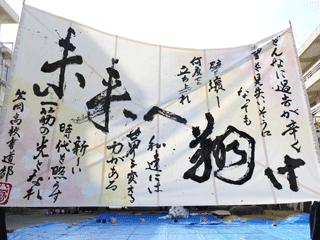 どんなに過去が辛く
夢を見失いそうに
なっても
壁を壊し
何度でも
立ち上れ
未来へ翔け
私達には
夢を変える
力がある
新しい
時代を照らす
一筋の光となれ
笠岡高校書道部